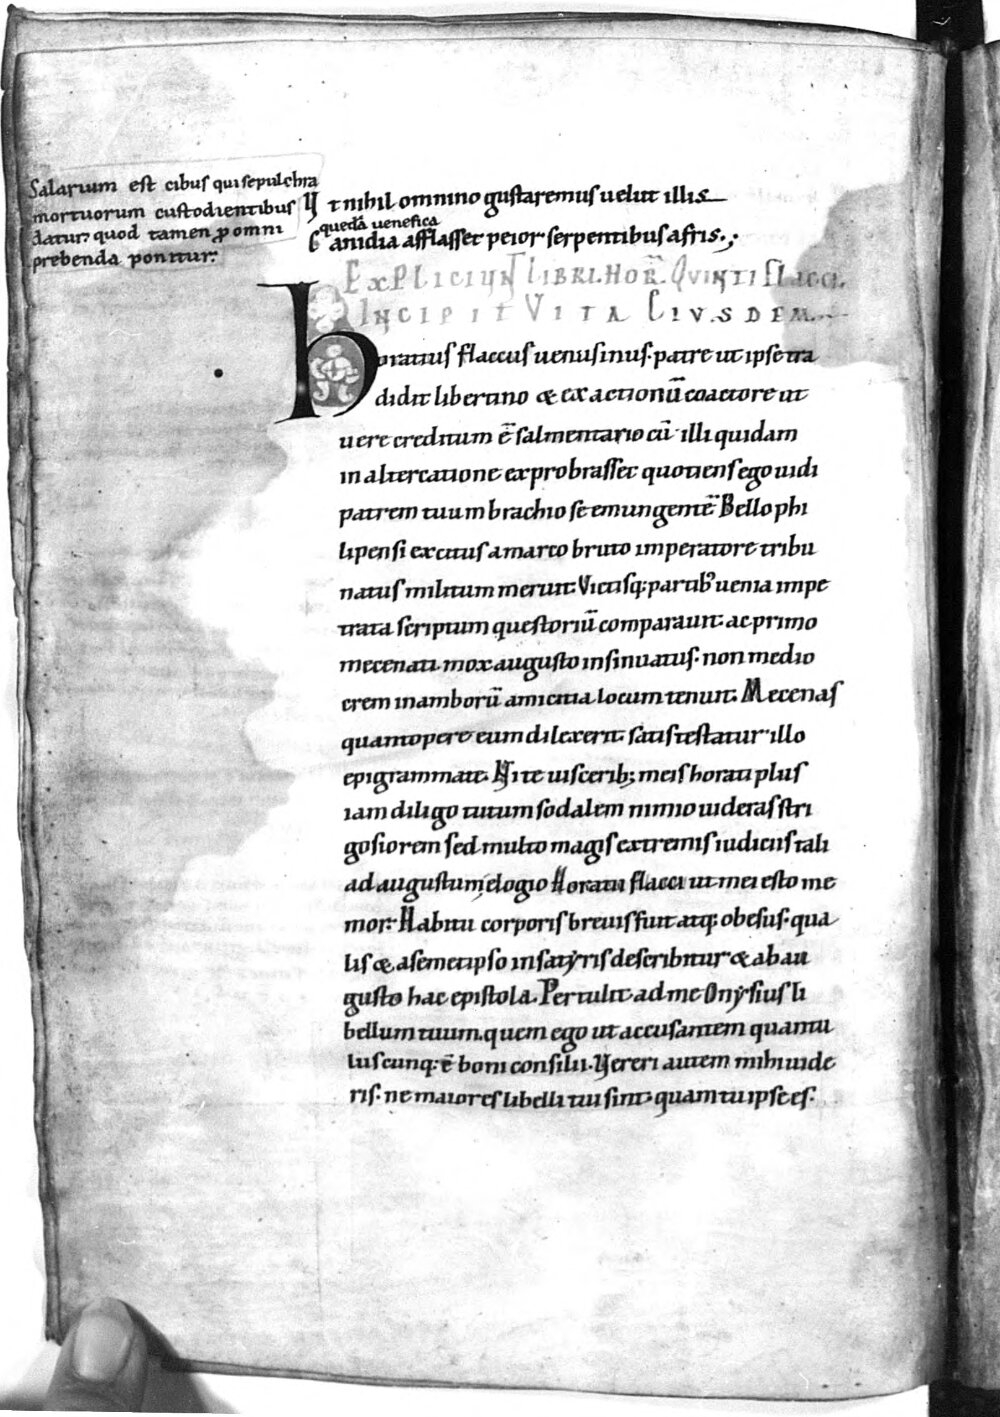 Salarium est cibus qui sepulchra
mortuorum custodientibus
datur. quod tamen ꝓ omni
prebenda ponitur.
Ut nihil omnino gustaremus uelut illis
quedā uenefica
Canidia afflasset peior serpentibus afris.
EXPLICIUNT LIBRI. HOR̄. QUINTI FLACCI.
INCIPIT VITA EIUSDEM.
Horatius flaccus uenusinus. patre ut ipse tra
didit libertino & exactionū coactore ut
uere creditum ē salmentario cū illi quidam
in altercatione exprobrasset quotiens ego uidi
patrem tuum brachio se emungentē Bello phi
lipensi excitus a marco bruto imperatore tribu
natus militum meruit. Victisq; partib' uenia impe
trata scriptum questoriū comparauit. ac primo
mecenati. mox augusto insinuatus. non medio
crem in amborū amicitia locum tenuit. Mecenas
quantopere eum dilexerit. satis testatur illo
epigrammate. Ni te uiscerib; meis horati plus
iam diligo tutum sodalem nimio uideras stri
gosiorem sed multo magis extremis iudiciis tali
ad augustum elogio Horatii flacci ut mei esto me
mor. Habitu corporis breuis fuit atq; obesus. qua
lis & a semetipso in satyris describitur & ab au
gusto hac epistola. Pertulit ad me Onysius li
bellum tuum. quem ego ut accusantem quantu
luscunq; ē boni consulii. Vereri autem mihi uide
ris. ne maiores libelli tui sint quam tu ipse es.